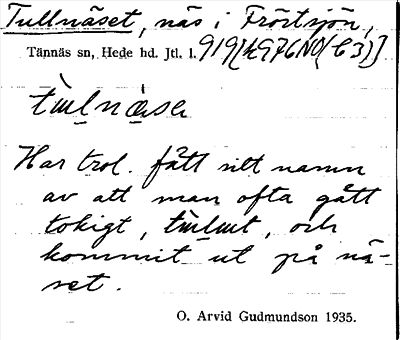 Tullnäset, näs i Frörtsjön,
Tännäs sn, Hede hd. Jtl. l. 919
Har trol. fått sitt namn
av att man ofta gått
tokigt, och
kommit ut på nä-
set.
O. Arvid Gudmundson 1935.